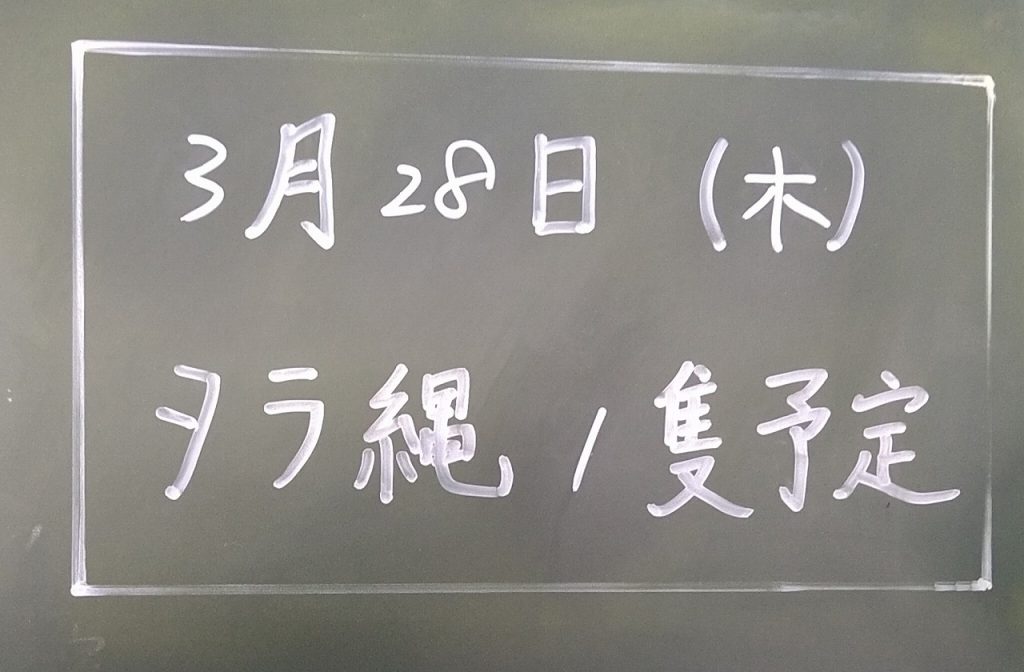 3月28日（木）
タラ縄1隻予定